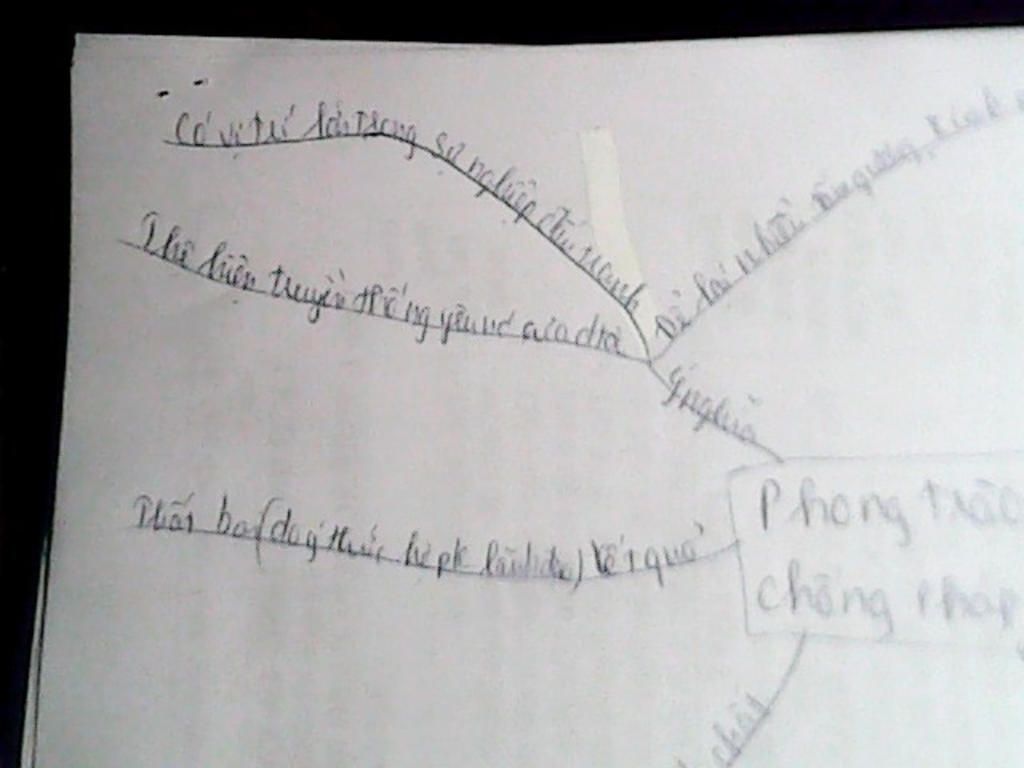 Có vị trí lớn trong sự nghiệp đấu tranh
Thể hiện truyền thống yêu nc của dtộc
Để lại nhiều tấm gương
Ý nghĩa
Thất bại (do ý thức hệ pk lãnh đạo) kết quả
Phong trào
chống Pháp